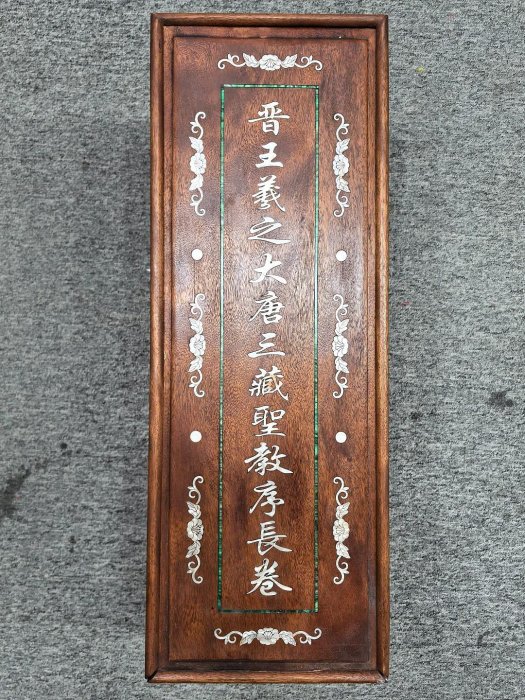 晋王羲之大唐三藏聖教序長卷